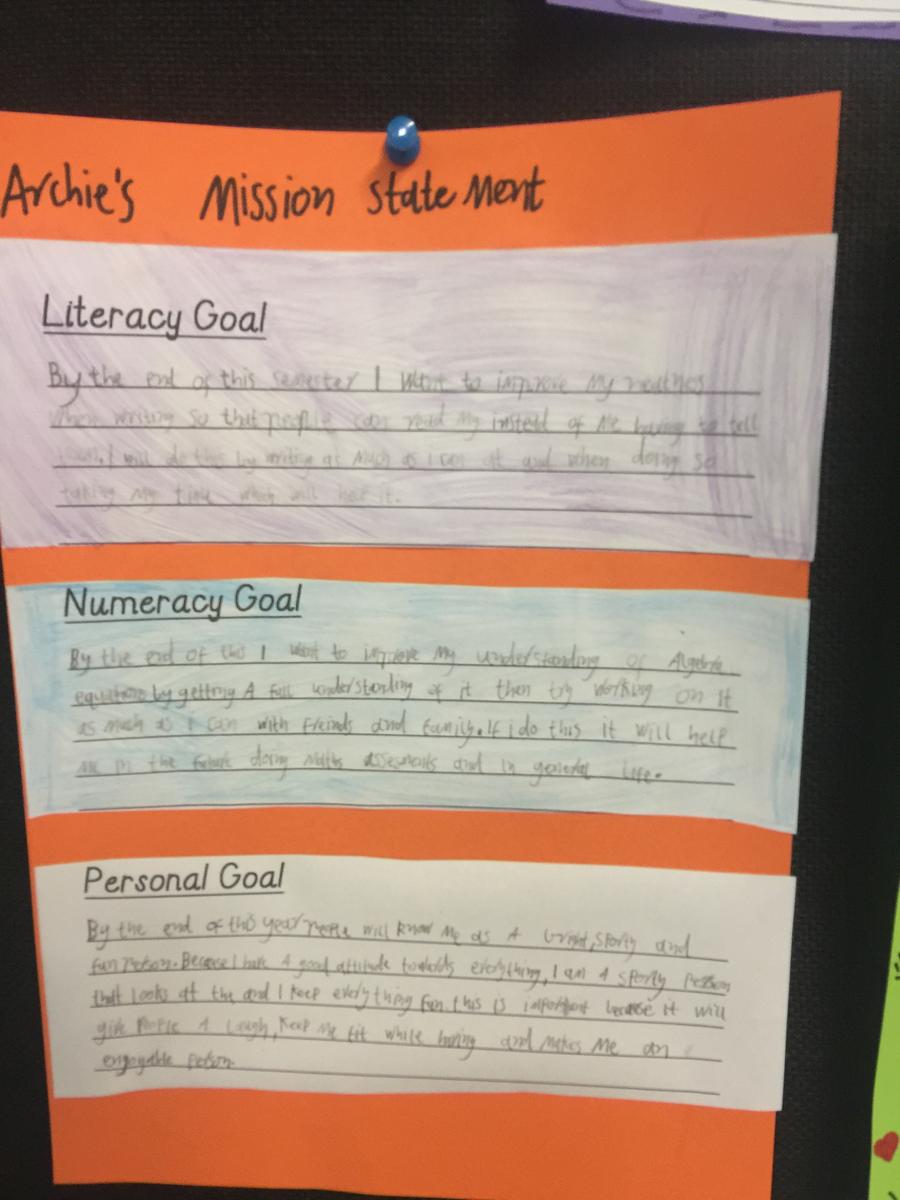 Archie's Mission statement
Literacy Goal
By the end of this semester I want to improve my neatnes
when writing so that people can read my instead of me having to tell
I will do this by writing as much as I can at and when doing so
taking my time which will help it.
Numeracy Goal
By the end of this I want to improve my understanding of Algebra
equations by getting A full understanding of it then try working on it
as much as i can with freinds and family. If i do this it will help
me in the future doing maths assesments and in general life.
Personal Goal
By the end of this year people will know me as A bright, sporty and
fun person. Becaue I have A good attitude towards everything, I am A sporty Person
that looks at the and I keep everything fun this is important because it will
give People A laugh, Keep me fit while having and makes me an
enjoyable person.